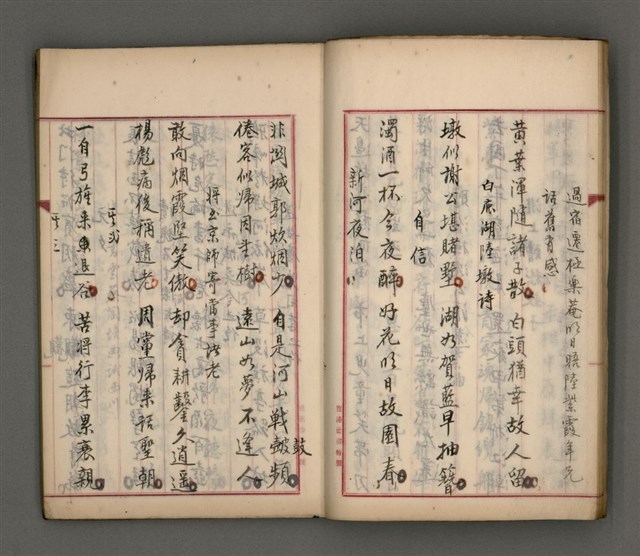 過宿遷杜巢菴明日晤陸紫霞年兄
話舊有感
黃葉渾隨諸子散 白頭猶幸故人留
白底湖陸墩詩
墩似謝公堪賭墅 湖如賀監早抽簪
自信
濁酒一杯今夜醉 好花明日故園春
新河夜泊
非關城郭炊烟少 自是河山戰鼓頻
鼓
倦客似歸因望樹 遠山如夢不逢人
將至京師寄當李諸老
敢向烟霞堅笑傲 却貪耕鑿久逍遥
楊彪病後稱遺老 周黨歸來話聖朝
其二
一自弓旌來退谷 苦將行李累衰親
其三